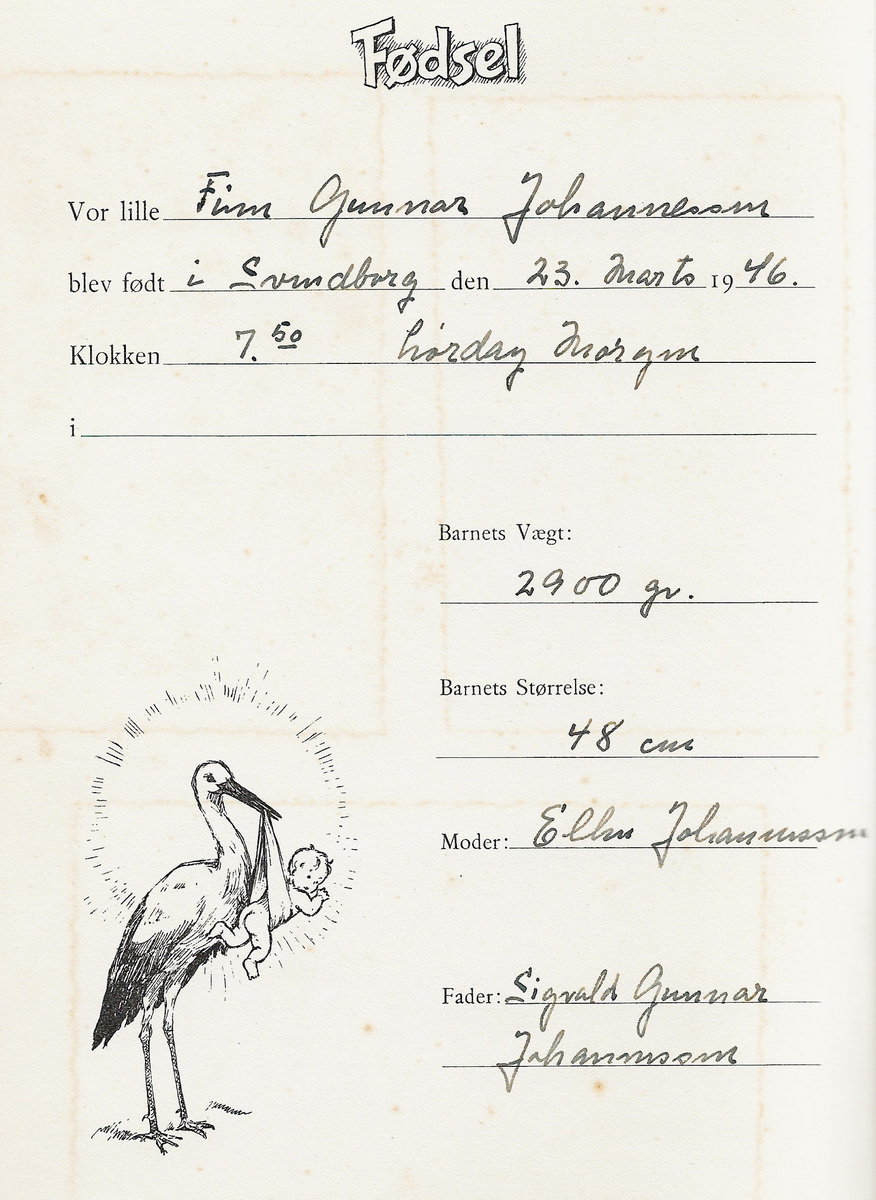 Fødsel
Vor lille Finn Gunnar Johannessen
blev født i Svendborg den 23. Marts 1946.
Klokken 7.50 Lørdag Morgen
i
Barnets Vægt:
2900 gr.
Barnets Størrelse:
48 cm
Moder: Ellen Johannessen
Fader: Sigvald Gunnar
Johannessen